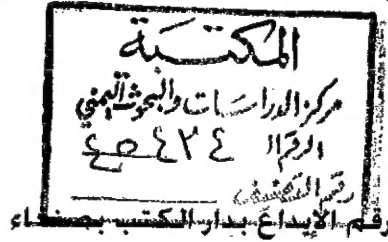 المكتبة
مركز الدراسات والبحوث اليمني
الرقم
رقم التصنيف
رقم الإيداع بدار الكتب بصنعاء